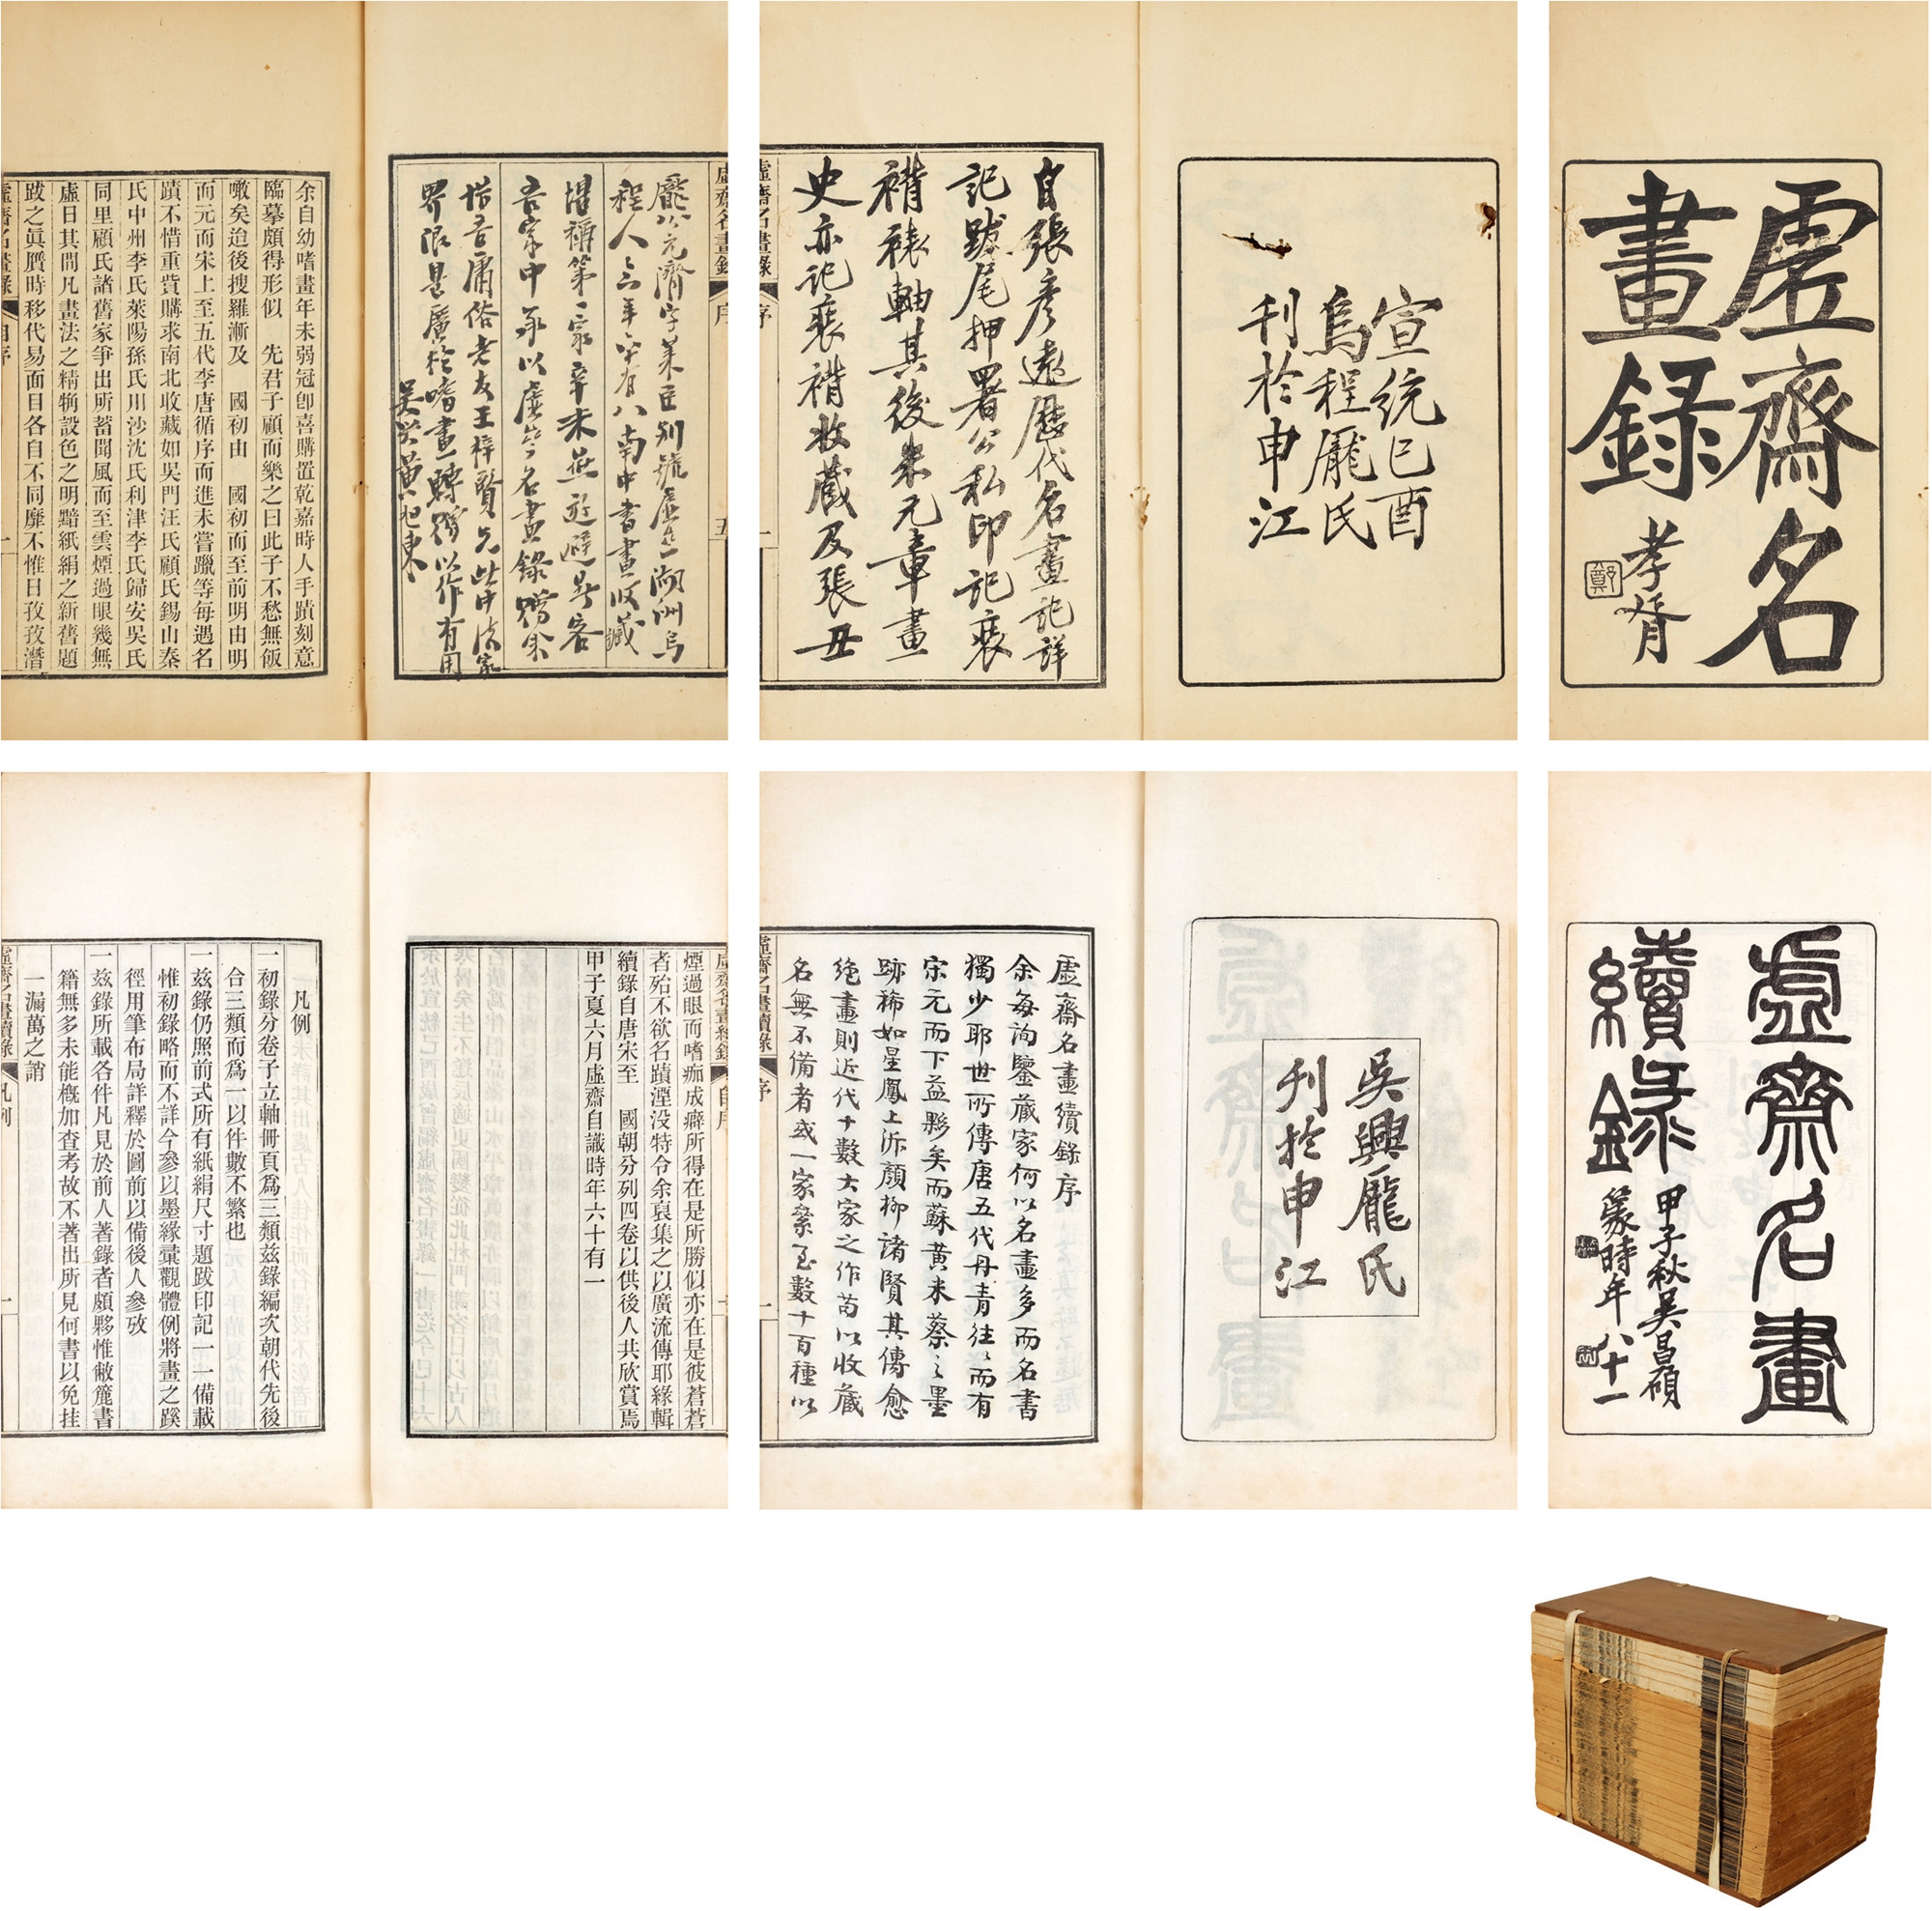 虛齋名
畫錄
孝胥
鄭
宣統己酉
烏程龐氏
刊於申江
自張彥遠歷代名畫記詳
記跋尾押署公私印記裝
褙裱軸其後米元章畫
史亦記裝褙收藏及張丑
虛齋名畫錄
序
龐公元濟字萊臣別號虛齋湖州烏
虛齋名畫錄
序
五
余自幼嗜畫年未弱冠卽喜購置乾嘉時人手蹟刻意
臨摹頗得形似　先君子顧而樂之曰此子不愁無飯
噉矣迨後搜羅漸及　國初由　國初而至前明由明
而元而宋上至五代李唐循序而進未嘗躐等每遇名
蹟不惜重貲購求南北收藏如吳門汪氏顧氏錫山秦
氏中州李氏萊陽孫氏川沙沈氏利津李氏歸安吳氏
同里顧氏諸舊家爭出所蓄聞風而至雲煙過眼幾無
虛日其間凡畫法之精觕設色之明黯紙絹之新舊題
跋之眞贋時移代易面目各自不同靡不惟日孜孜潛
虛齋名畫錄
自序
一
虛齋名畫
續錄
甲子秋吳昌碩
篆時年八十一
吳興龐氏
刊於申江
虛齋名畫續錄序
余每詢鑒藏家何以名畫多而名書
獨少耶世所傳唐五代丹青往往而有
宋元而下益夥矣而蘇黃米蔡之墨
跡稀如星鳳上泝顏柳諸賢其傳愈
絕畫則近代十數大家之作苟以收藏
名無不備者或一家絫至數十百種以
虛齋名畫續錄
序
一
虛齋名畫續錄
自序
煙過眼而嗜痂成癖所得在是所勝似亦在是彼蒼蒼
者殆不欲名蹟湮没特令余裒集之以廣流傳耶綠輯
續錄自唐宋至　國朝分列四卷以供後人共欣賞焉
甲子夏六月虛齋自識時年六十有一
凡例
一初錄分卷子立軸冊頁爲三類茲錄編次朝代先後
合三類而爲一以件數不繁也
一茲錄仍照前式所有紙絹尺寸題跋印記一一備載
惟初錄略而不詳今參以墨緣彙觀體例將畫之蹊
徑用筆布局詳釋於圖前以備後人參攷
一茲錄所載各件凡見於前人著錄者頗夥惟敝簏書
籍無多未能概加查考故不著出所見何書以免挂
一漏萬之誚
虛齋名畫續錄
凡例
一